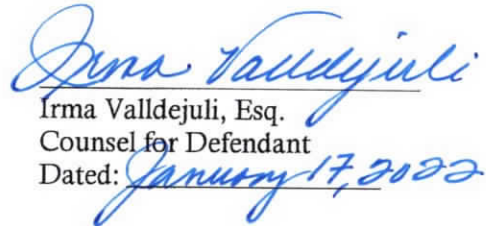 Irma Valldejuli
Irma Valldejuli, Esq.
Counsel for Defendant
Dated: January 17, 2022